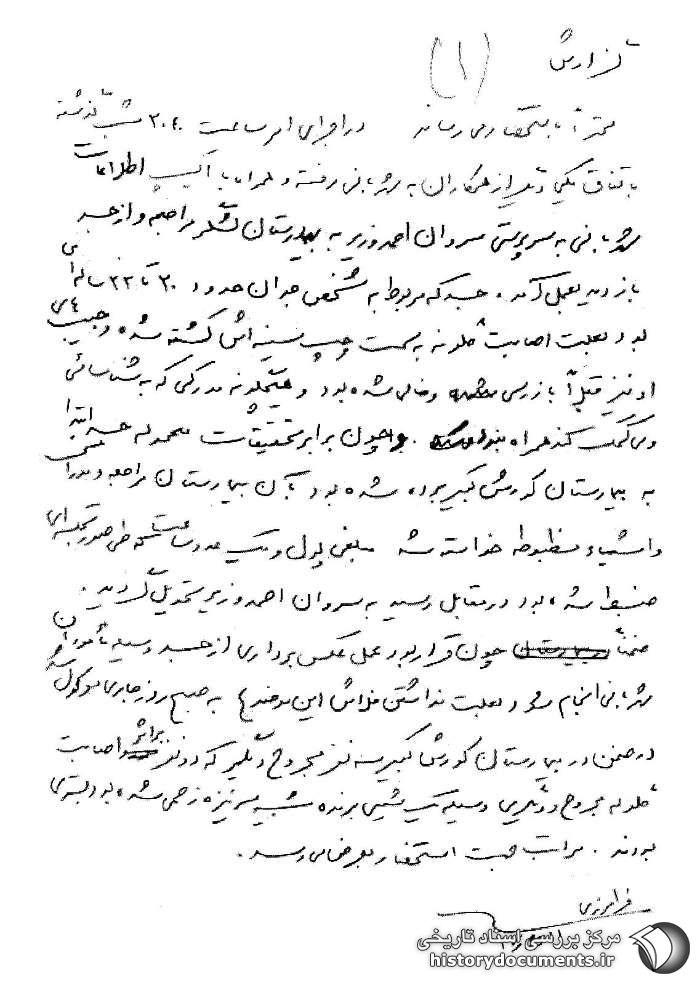 گزارش
(۱)
محترماً باستحضار میرساند در اجرای امر ساعت ۲۰:۴۰ شب گذشته
باتفاق یکی دیگر از همکاران به شهربانی رفته و همراه با اکیپ اطلاعات
شهربانی به سرپرستی سروان احمد وزیر به بیمارستان لشگر مراجعه و از جسد
بازدید بعمل آمد. جسد که مربوط به شخص جوان حدود ۲۰ تا ۲۲ ساله‌ای
بود بعلت اصابت گلوله به سمت چپ سینه اش کشته شده و جیب‌های
او نیز قبلاً بازرسی و خالی شده بود و هیچگونه مدرکی که به شناسائی
وی کمک کند همراه نداشت. چون برابر تحقیقات معموله جسد ابتدا
به بیمارستان کورش کبیر برده شده بود بآن بیمارستان مراجعه و مدارک
و اشیاء مظبوطه خواسته شد مبلغی پول و یک عدد ساعت که طی صورتجلسه‌ای
ضبط شده بود در مقابل رسید به سروان احمد وزیر تحویل گردید.
ضمناً چون قرار بود عمل عکس برداری از جسد وسیله مأموران
شهربانی انجام شود و بعلت نداشتن فلاش این موضوع به صبح روز جاری موکول شد
در ضمن در بیمارستان کورش کبیر سه نفر مجروح دیگر که دو نفر بر اثر اصابت
گلوله مجروح و دیگری وسیله یک شیئی برنده شبیه سر نیزه زخمی شده بود بستری
بودند. مراتب جهت استحضار بعرض میرسد.
فرامرزی
مرکز بررسی اسناد تاریخی
historydocuments.ir